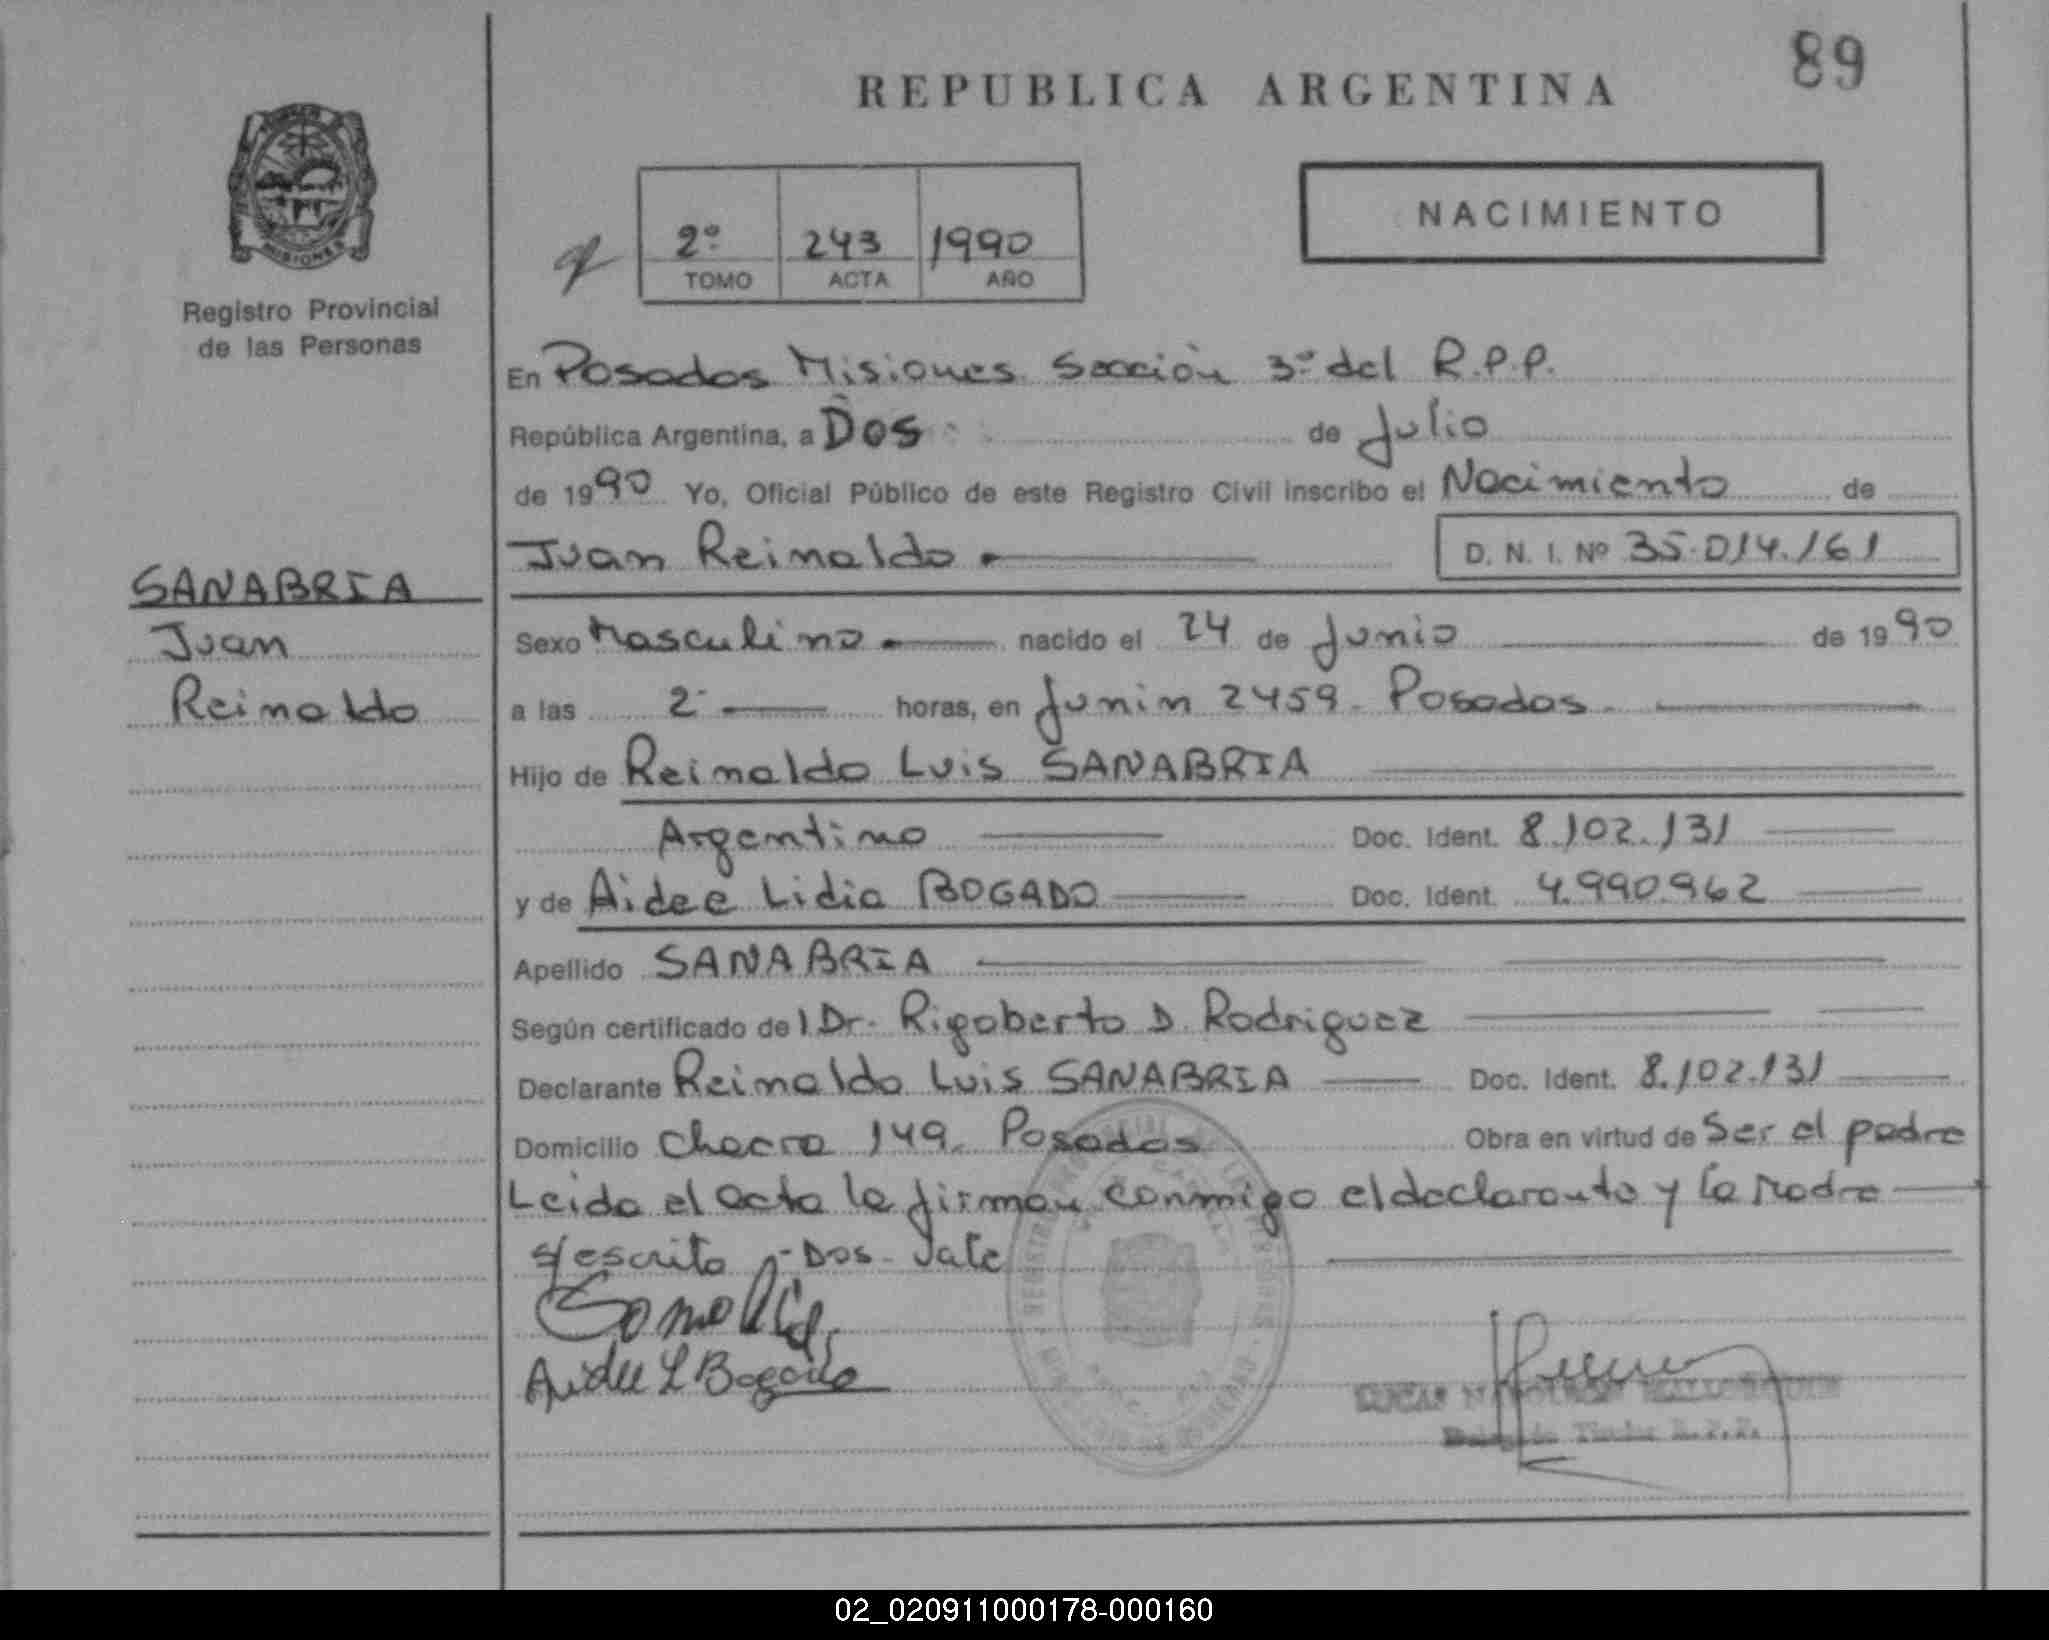 89
REPUBLICA ARGENTINA
NACIMIENTO
2º 243 1990
TOMO ACTA AÑO
MISIONES
Registro Provincial
de las Personas
En Posadas Misiones Sección 3º del R.P.P.
República Argentina, a Dos de Julio
de 1990 Yo, Oficial Público de este Registro Civil inscribo el Nacimiento de
Juan Reinaldo
D. N. I. Nº 35.014.161
SANABRIA
Juan
Reinaldo
Sexo Masculino nacido el 24 de Junio de 1990
a las 2 horas, en Junin 2459 - Posadas
Hijo de Reinaldo Luis SANABRIA
Argentino Doc. Ident. 8.102.131
y de Aidee Lidia BOGADO Doc. Ident. 4.990.962
Apellido SANABRIA
Según certificado de l Dr. Rigoberto D. Rodriguez
Declarante Reinaldo Luis SANABRIA Doc. Ident. 8.102.131
Domicilio Chacra 149. Posadas Obra en virtud de Ser el padre
Leida el acta la firman conmigo el declarante y la Madre
s/escrito - Dos - Vale
Aidee L Bogado
02_020911000178-000160